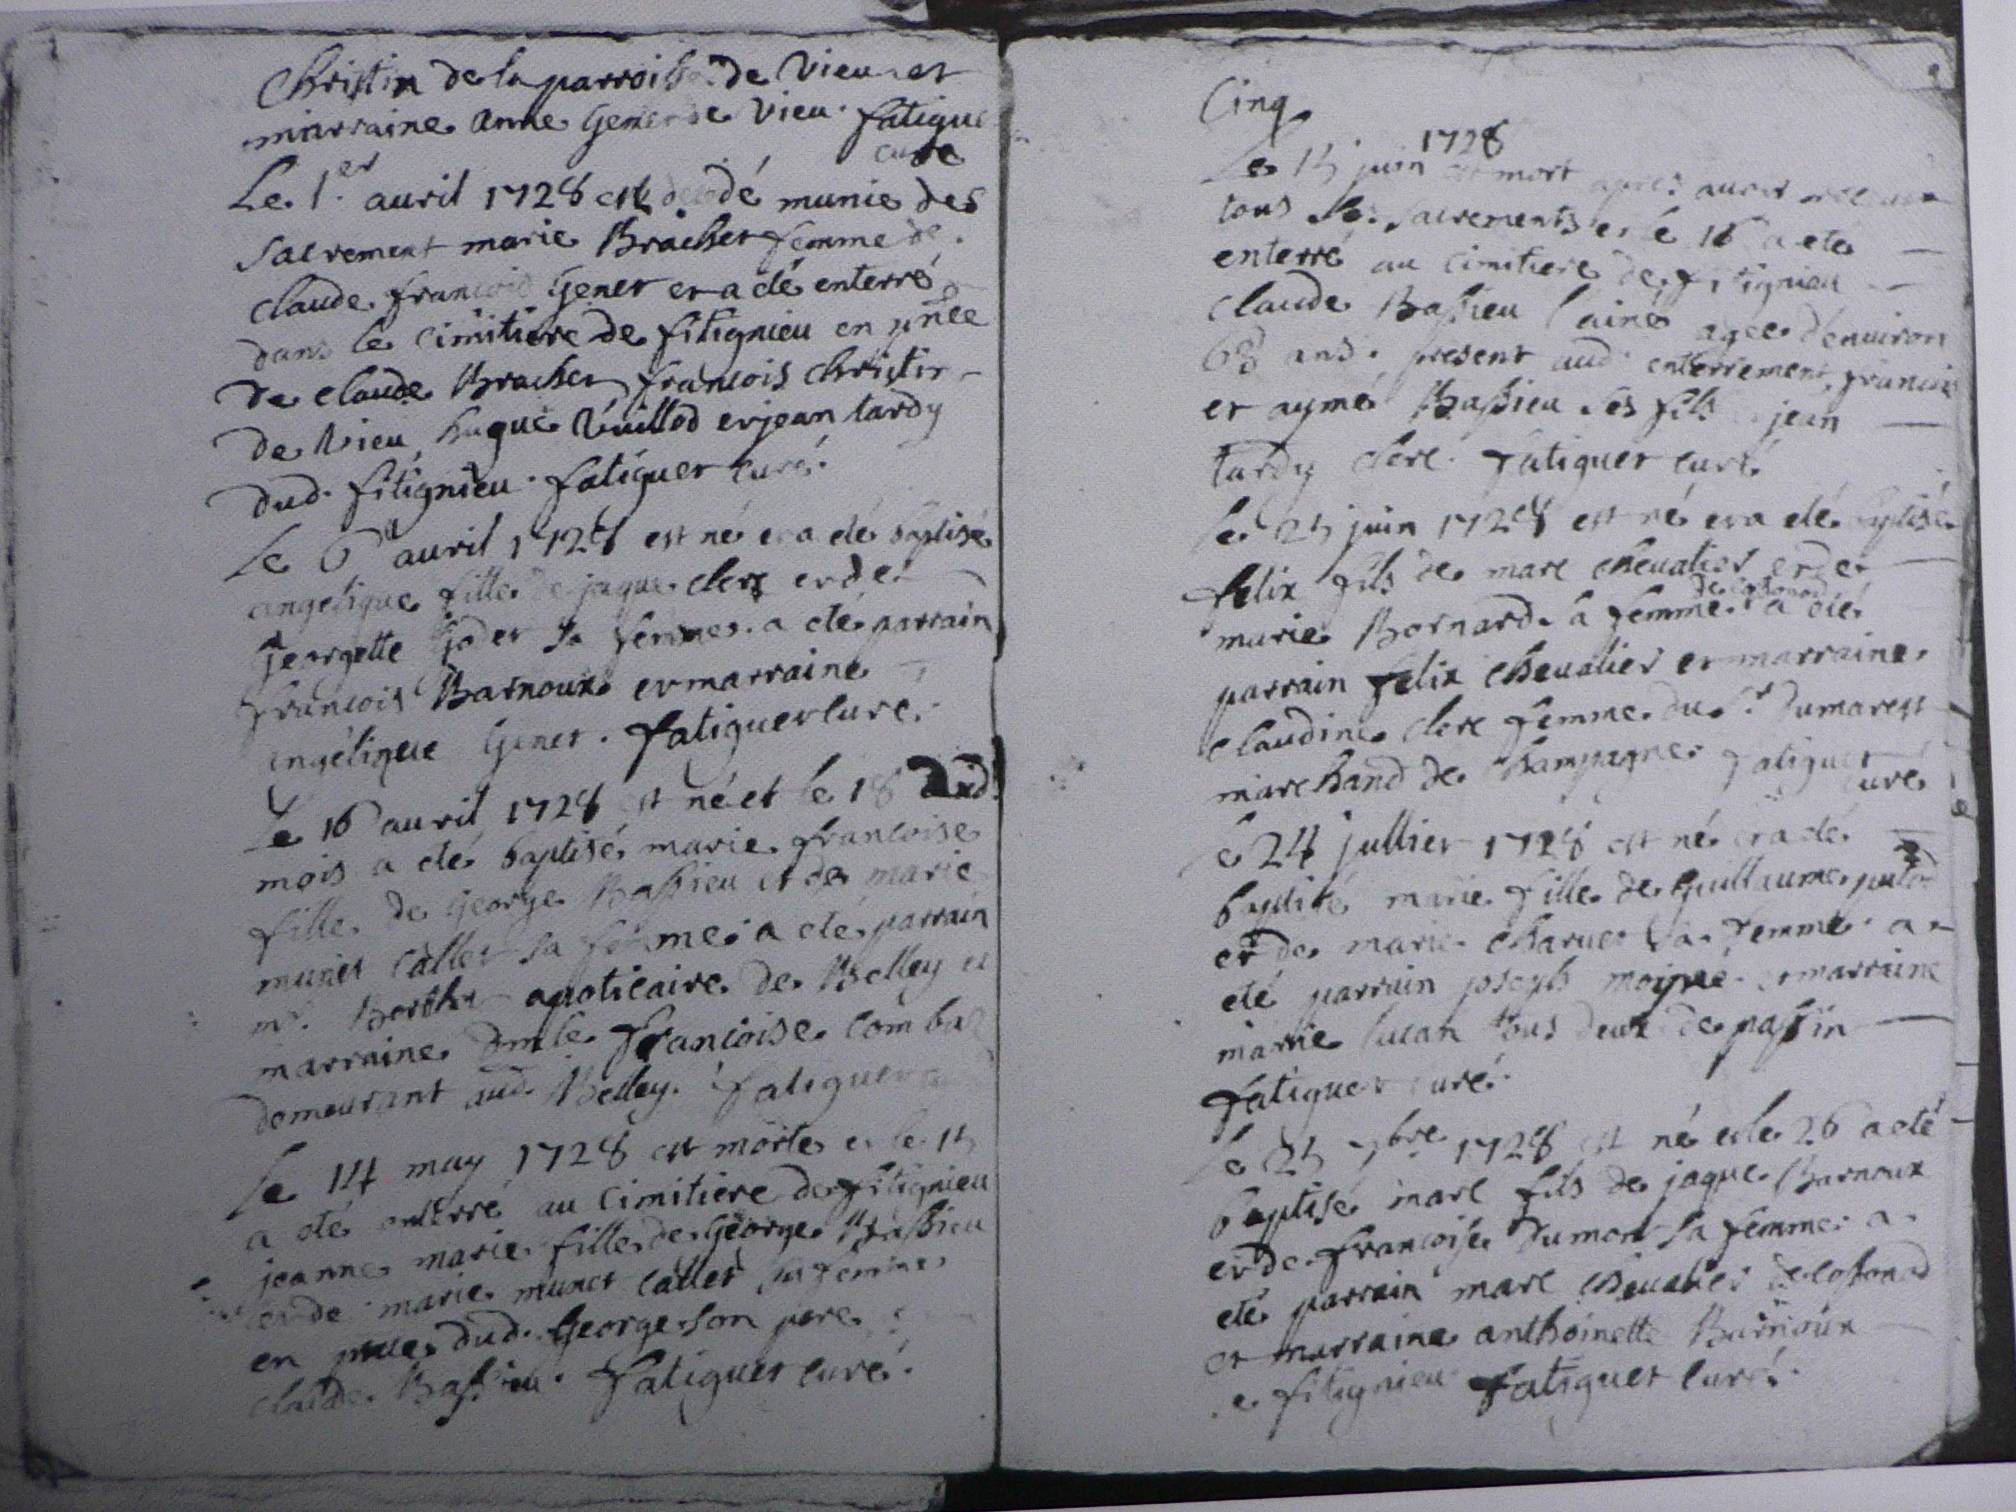 Christin de la parroisse de Vieu et
marraine Anne Genet de Vieu. fatiguet
curé
Le 1.er auril 1728 est decedé munie des
sacrement marie Brachet femme de
claude francois Genet et a eté enterré
dans le cimitiere de fitignieu en pnce
de claude Brachet francois christin
de Vieu, hugue Vuillod et jean tardy
dud. fitignieu. fatiguet curé.
Le 6 auril 1728 est né et a eté baptisé
angelique fille de jaque clerc et de
georgette joder sa femme. a eté parrain
francois Barnoux et marraine
angélique Genet. fatiguet curé.
Le 16 auril 1728 est né et le 18 dud.
mois a eté baptisé marie francoise
fille de George Bassieu et de marie
munet callet sa femme. a eté parrain
mr. Berthet apoticaire de Belley et
marraine dmlle francoise combaz
demeurant aud. Belley. fatiguet
Le 14 may 1728 est morte et le 15
a eté enterré au cimitiere de fitignieu
jeanne marie fille de George Bassieu
et de marie munet callet sa femme
en pnce dud. George son pere
claude Bassieu. fatiguet curé.
Cinq
1728
Le 15 juin est mort apres auoir receu
tous les sacrements et le 16 a eté
enterré au cimitiere de fitignieu
claude Bassieu l'ainé agee d'enuiron
68 ans. present aud. enterrement francois
et aymé Bassieu ses fils et jean
tardy clerc. fatiguet curé
Le 25 juin 1728 est né et a eté baptisé
felix fils de marc cheualier et de
marie Bornard sa femme a eté
parrain felix cheualier et marraine
claudine clerc femme du sr dumarest
marchand de champagne. fatiguet
curé
Le 24 jullier 1728 est né et a eté
baptisé marie fille de Guillaume
et de marie charuet sa femme. a
eté parrain joseph moiné et marraine
marie lucan tous deux de passin
fatiguet curé.
Le 25 7bre 1728 est né et le 26 a eté
baptisé marc fils de jaque Barnoux
et de francoise dumon sa femme. a
eté parrain marc cheualier de lostonod
et marraine anthoinette Barnoux
de fitignieu fatiguet curé.